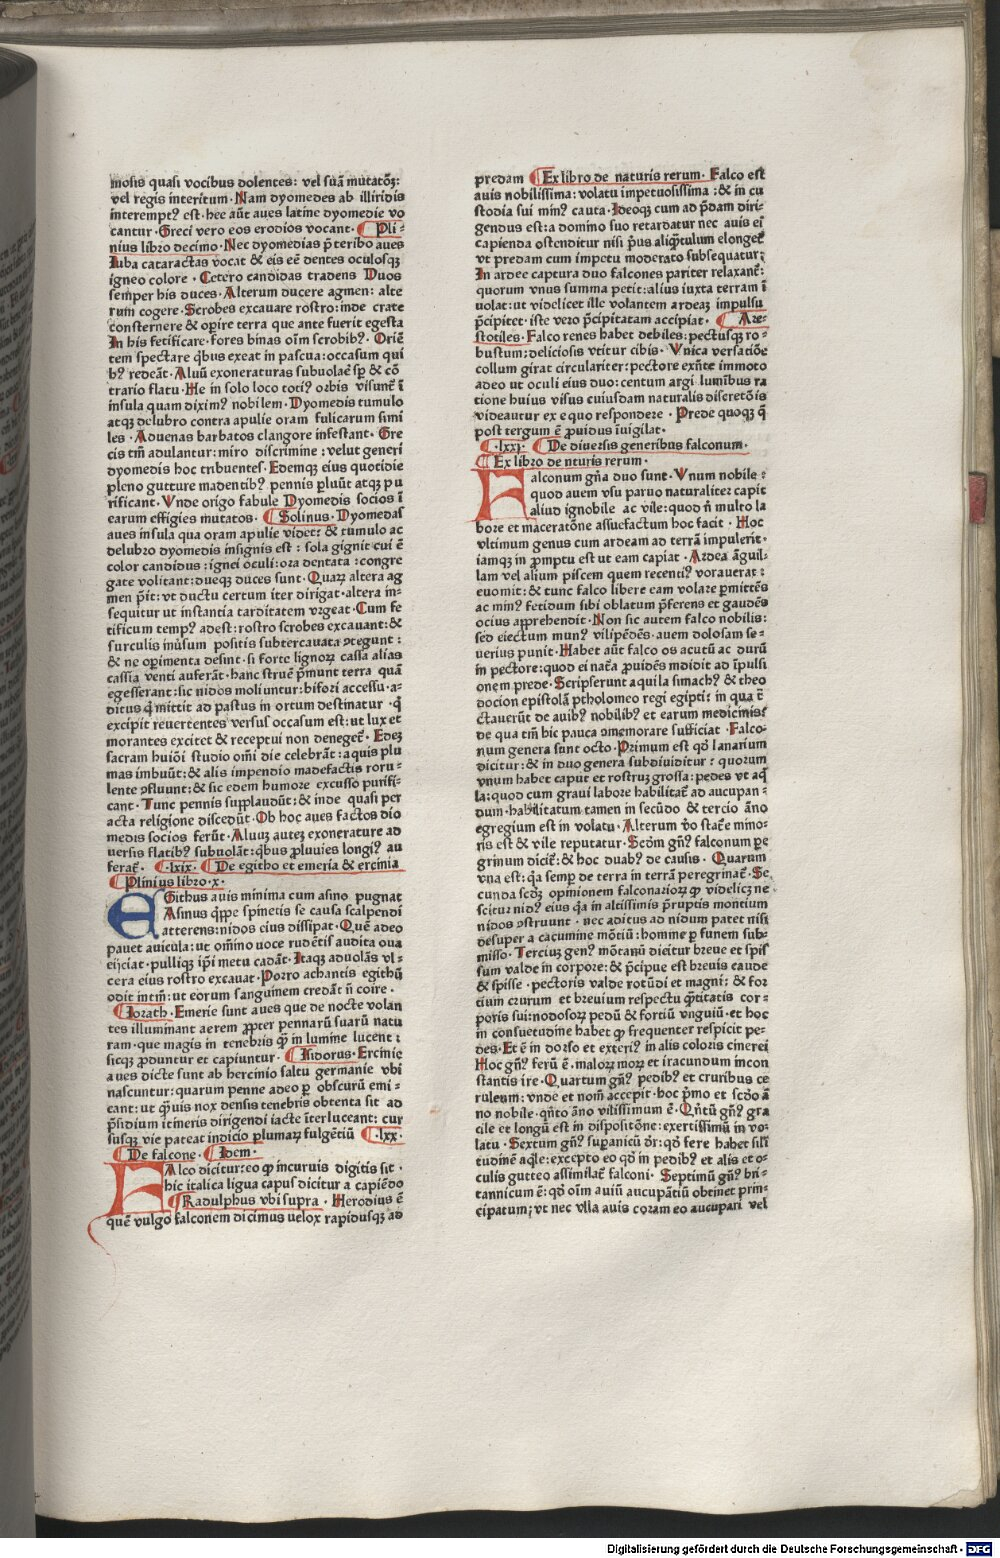 mosis quasi vocibus dolentes: vel suā mutatōꝫ:
vel regis interitum· Nam dyomedes ab illiridis
interemptꝰ est· hee aūt aues latine dyomedie vo
cantur· Greci vero eos erodios vocant· ¶ Pli⸗
nius libro decimo· Nec dyomedias p̄teribo aues
Iuba cataractas vocat & eis eē dentes oculosqꝫ
igneo colore · Cetero candidas tradens Duos
semper his duces· Alterum ducere agmen: alte
rum cogere· Scrobes excauare rostro: inde crate
consternere & opire terra que ante fuerit egesta
In his fetificare· fores binas oīm scrobibꝰ· Oriē
tem spectare q̇bus exeat in pascua: occasum qui
bꝰ redeāt· Aluū exoneraturas subuolaē sꝑ & cō
trario flatu· He in solo loco totiꝰ orbis visunt̄ ī
insula quam diximꝰ nobilem· Dyomedis tumulo
atqꝫ delubro contra apulie oram fulicarum simi
les · Aduenas barbatos clangore infestant· Gre
cis tm̄ adulantur: miro discrimine : velut generi
dyomedis hoc tribuentes· Edemqꝫ eius quotidie
pleno gutture madentibꝰ pennis pluūt atqꝫ pu
rificant· Vnde origo fabule Dyomedis socios ī
earum effigies mutatos· ¶ Solinus· Dyomedas
aues insula qua oram apulie videt: & tumulo ac
delubro dyomedis insignis est : sola gignit cui ē
color candidus : ignei oculi: ora dentata : congre
gate volitant: dueqꝫ duces sunt· Quaꝝ altera ag
men p̄it: vt ductu certum iter dirigat· altera in⸗
sequitur ut instantia tarditatem vrgeat· Cum fe
tificum tempꝰ adest: rostro scrobes excauant: &
surculis inūsum positis subtercauata ꝯtegunt :
& ne operimenta desint· si forte lignoꝝ cassa alias
cassia venti auferāt· hanc strue p̄munt terra quā
egesserant: sic nidos moliuntur: bifori accessu· a⸗
ditus q̄ mittit ad pastus in ortum destinatur · q̄
excipit reuertentes versus occasum est: ut lux et
morantes excitet & receptui non denegetꝰ· Edeꝫ
sacram huiōi studio omī die celebrāt : aquis plu
mas imbuūt: & alis impendio madefactis roru⸗
lente ꝯfluunt: & sic edem humore excusso purifi⸗
cant· Tunc pennis supplaudūt: & inde quasi per
acta religione discedūt· Ob hoc aues factos dio
medis socios ferūt· Aluuꝫ auteꝫ exonerature ad
uersis flatibꝰ subuolāt: q̇bus ꝓluuies longiꝰ au
ferat̄· ¶ ·lxix· ¶ De egitho et emeria & ercinia
¶ Plinius libro·x·
EGithus auis minima cum asino pugnat
Asinus q̇ppe spinetis se causa scalpendi
atterens: nidos eius dissipat· Quē adeo
pauet auicula: ut om̄ino uoce rudētis audita oua
eijciat· pulliqꝫ ip̄i metu cadāt· Itaqꝫ aduolās vl⸗
cera eius rostro excauat· Porro achantis egithū
odit intm̄: ut eorum sanguinem credāt n̄ coire ·
¶ Iorath· Emerie sunt aues que de nocte volan
tes illuminant aerem ꝓpter pennarū suarū natu
ram· que magis in tenebris qꝫ in lumine lucent :
sicqꝫ ꝓduntur et capiuntur· ¶ Isidorus· Ercinie
aues dicte sunt ab hercinio saltu germanie vbi
nascuntur: quarum penne adeo ꝑ obscurū emi⸗
cant: ut q̄uis nox densis tenebris obtenta sit ad
p̄sidium itineris dirigendi iacte iterluceant: cur
susqꝫ vie pateat indicio plumaꝝ fulgētiū ¶ ·lxx·
¶ De falcone· ¶ Idem·
FAlco dicitur: eo qꝫ incuruis digitis sit ·
hic italica ligua capus dicitur a capiēdo
¶ Radulphus vbi supra · Herodius ē
quē vulgo falconem dicimus uelox rapidusqꝫ ad
predam ¶ Ex libro de naturis rerum· Falco est
auis nobilissima: volatu impetuosissima : & in cu
stodia sui minꝰ cauta· Ideoqꝫ cum ad p̄dam diri⸗
gendus est: a domino suo retardatur nec auis ei
capienda ostenditur nisi pꝰus aliq̄tulum elonget̄
vt predam cum impetu moderato subsequatur:
In ardee captura duo falcones pariter relaxant̄:
quorum vnus summa petit: alius iuxta terram ī
uolat: ut videlicet ille volantem ardeaꝫ impulsu
p̄cipitet· iste vero p̄cipitatam accipiat· ¶ Are⸗
stotiles· Falco renes habet debiles: pectusqꝫ ro⸗
bustum: deliciosis vtitur cibis· Vnica versatiōe
collum girat circulariter: pectore exn̄te immoto
adeo ut oculi eius duo: centum argi luminibus ra
tione huius visus cuiusdam naturalis discretōis
videautur ex equo respondere · Prede quoqꝫ q̄
post tergum ē ꝓuidus īuigilat·
¶ ·lxxj· ¶ De diuersis generibus falconum·
¶ Ex libro de nturis rerum·
FAlconum gn̄a duo sunt· Vnum nobile :
quod auem vsu paruo naturaliter capit
aliud ignobile ac vile: quod n̄ multo la
bore et maceratōne assuefactum hoc facit · Hoc
vltimum genus cum ardeam ad terrā impulerit·
iamqꝫ in ꝓmptu est ut eam capiat · Ardea āguil⸗
lam vel alium piscem quem recentiꝰ vorauerat :
euomit: & tunc falco libere eam volare ꝑmittēs
ac minꝰ fetidum sibi oblatum p̄ferens et gaudēs
ocius apprehendit· Non sic autem falco nobilis:
sed eiectum munꝰ vilipēdēs· auem dolosam se⸗
uerius punit· Habet aūt falco os acutū ac durū
in pectore: quod ei nat̄a ꝓuidēs īndidit ad īpulsi
onem prede· Scripserunt aquila simachꝰ & theo
docion epistolā ptholomeo regi egipti: in qua t̄
c̄tauerūt de auibꝰ nobilibꝰ et earum medicinis:
de qua tm̄ hic pauca ꝯmemorare sufficiat · Falco⸗
num genera sunt octo· Primum est qd̄ lanarium
dicitur: & in duo genera subdiuiditur : quorum
vnum habet caput et rostruꝫ grossa: pedes vt aq̇
la: quod cum graui labore habilitat̄ ad aucupan⸗
dum· habilitatum tamen in secūdo & tercio āno
egregium est in volatu· Alterum v̄o stat̄e mino⸗
ris est & vile reputatur· Scd̄m gn̄ꝰ falconum pe
grinum dicit̄: & hoc duabꝰ de causis · Quarum
vna est: q̇a semꝑ de terra in terrā peregrinat̄· Se
cunda scd̄ꝫ opinionem falconarioꝝ qꝫ videlicꝫ ne
scitur nidꝰ eius q̇a in altissimis p̄ruptis montium
nidos ꝯstruunt · nec aditus ad nidum patet nisi
desuper a cacumine mōtiū: homine ꝑ funem sub⸗
misso· Tercium genꝰ mōtanū dicitur breue et spis
sum valde in corpore: & p̄cipue est breuis caude
& spisse · pectoris valde rotūdi et magni: & for
tium crurum et breuium respectu q̄titatis cor⸗
poris sui: nodosoꝝ pedū & fortiū vnguiū· et hoc
in consuetudine habet qꝫ frequenter respicit pe⸗
des· Et ē in dorso et exteriꝰ in alis coloris cinerei
Hoc gn̄ꝰ ferū ē · maloꝝ moꝝ et iracundum incon
stantis ire· Quartum gn̄ꝰ pedibꝰ et cruribus ce
ruleum: vnde et nom̄ accepit· hoc p̄mo et scd̄o ā
no nobile· q̇nto āno vilissimum ē · Qn̄tū gn̄ꝰ gra
cile et longū est in dispositōne: exertissimū in vo⸗
latu· Sextum gn̄ꝰ supanicū dr̄: qd̄ fere habet sil̄i
tudinē aq̇le: excepto eo qd̄ in pedibꝰ et alis et o⸗
culis gutteo assimilat̄ falconi· Septimū gn̄ꝰ bri⸗
tannicum ē: qd̄ oīm auiū aucupātiū obtinet prin⸗
cipatum; vt nec vlla auis coram eo aucupari vel
Digitalisierung gefördert durch die Deutsche Forschungsgemeinschaft · DFG